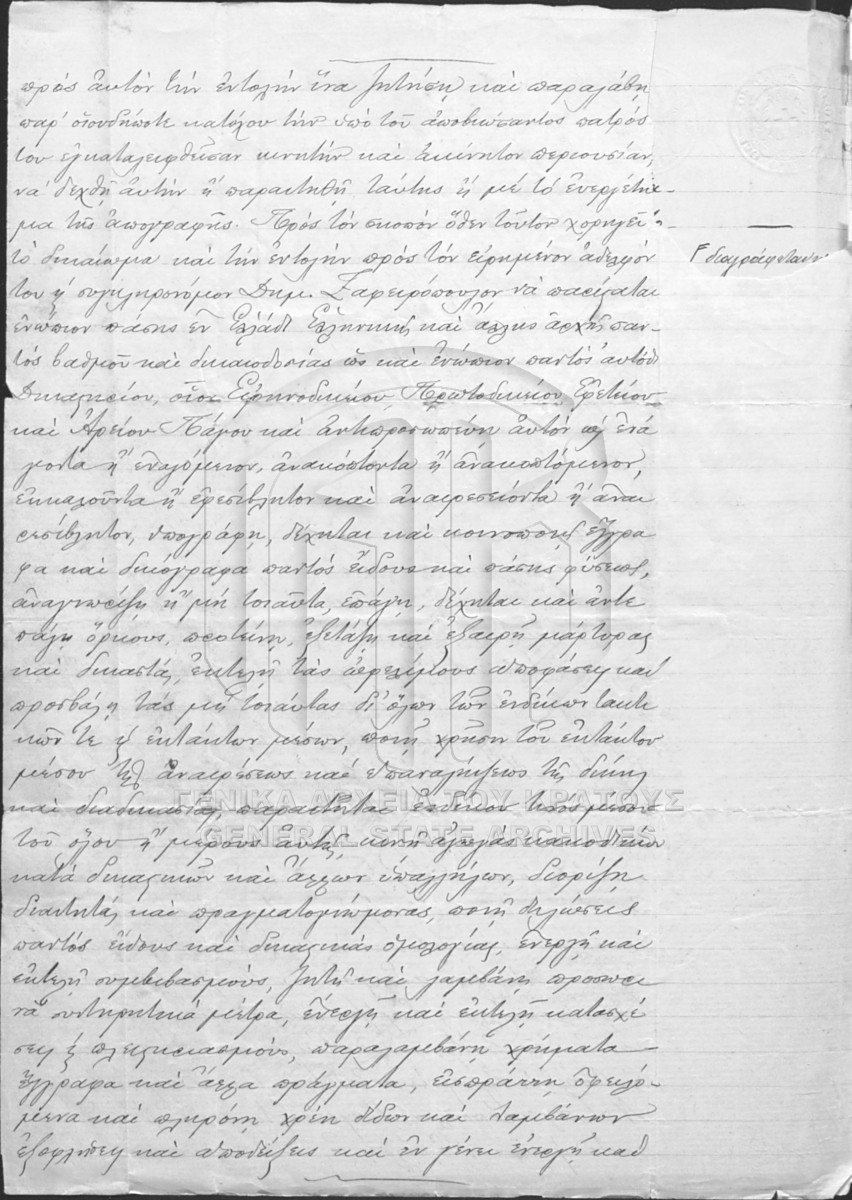 πρὸς ἀυτὸν τὴν ἐντολὴν ἵνα ζητήσῃ καὶ παραλάβῃ
παρ' οἱουδήποτε κατόχου τὴν ὑπὸ τοῦ ἀποβιώσαντος πατρός
του ἐγκαταλειφθεῖσαν κινητὴν καὶ ἀκίνητον περιουσίαν,
νὰ δεχθῇ ἀυτὴν ἢ παραιτηθῇ ταύτης ἢ μὲ τὸ ἐυεργέτη-
μα τῆς ἀπογραφῆς. Πρὸς τὸν σκοπὸν ὅθεν τοῦτον χορηγεῖ
τὸ δικαίωμα καὶ τὴν ἐντολὴν πρὸς τὸν εἰρημένον ἀδελφόν
του ϗ συγκληρονόμον Δημ. Ζαφειρόπουλον νὰ παρίσταται
ἐνώπιον πάσης ἐν Ἑλλάδι Ἑλληνικῆς καὶ ἄλλης ἀρχῆς παν-
τὸς βαθμοῦ καὶ δικαιοδοσίας ὡς καὶ ἐνώπιον παντὸς ἀυτόθι
Δικαστηρίου, οἷον Εἰρηνοδικείου, Πρωτοδικείου, Ἐφετείου
καὶ Ἀρείου Πάγου καὶ ἀντιπροσωπεύῃ ἀυτὸν ὡς ἐνά
γοντα ἢ ἐναγόμενον, ἀνακόπτοντα ἢ ἀνακοπτόμενον,
ἐκκαλοῦντα ἢ ἐφεσίβλητον καὶ ἀναιρεσείοντα ἢ ἀναι
ρεσίβλητον, ὑπογράφῃ, δέχηται καὶ κοινοποιῇ ἔγγρα
φα καὶ δικόγραφα παντὸς εἴδους καὶ πάσης φύσεως,
ἀναγνωρίζῃ ἢ μὴ τοιαῦτα, ἐπάγῃ, δέχηται καὶ ἀντε
πάγῃ ὅρκους, προτείνῃ, ἐξετάζῃ καὶ ἐξαιρῇ μάρτυρας
καὶ δικαστάς, ἐκτελῇ τὰς ὠφελίμους ἀποφάσεις καὶ
προσβάλῃ τὰς μὴ τοιαύτας δι' ὅλων τῶν ἐνδίκων τακτι
κῶν τε ϗ ἐκτάκτων μέσων, ποιῇ χρῆσιν τοῦ ἐκτάκτου
μέσου τῆς ἀναιρέσεως καὶ ἐπαναλήψεως τῆς δίκης
καὶ διαδικασίας, παραιτῆται ἐνδίκου τινὸς μέσου
τοῦ ὅλου ἢ μέρους ἀυτῆς, κινῇ ἀγωγὰς κακοδικίας
κατὰ δικαστικῶν καὶ ἄλλων ὑπαλλήλων, διορίζῃ
διαιτητάς καὶ πραγματογνώμονας, ποιῇ δηλώσεις
παντὸς εἴδους καὶ δικαστικὰς ὁμολογίας, ἐνεργῇ καὶ
ἐκτελῇ συμβιβασμούς, ζητῇ καὶ λαμβάνῃ προσωρι
νὰ συντηρητικὰ μέτρα, ἐνεργῇ καὶ ἐκτελῇ κατασχέ
σεις ϗ πλειστηριασμούς, παραλαμβάνῃ χρήματα
ἔγγραφα καὶ ἄλλα πράγματα, εἰσπράττῃ ὀφειλό-
μενα καὶ πληρόνῃ χρέη δίδων καὶ λαμβάνων
ἐξοφλήσεις καὶ ἀποδείξεις καὶ ἐν γένει ἐνεργῇ καὶ
διαγράφεται
ΓΕΝΙΚΑ ΑΡΧΕΙΑ ΤΟΥ ΚΡΑΤΟΥΣ
GENERAL STATE ARCHIVES